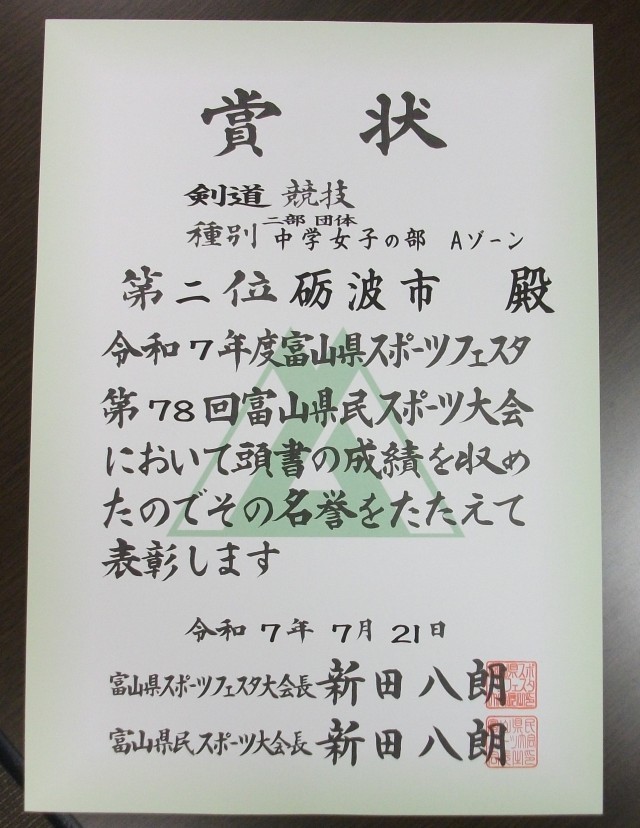 賞状
剣道 競技
二部 団体
種別 中学女子の部 Aゾーン
第二位 砺波市 殿
令和7年度富山県スポーツフェスタ
第78回富山県民スポーツ大会
において頭書の成績を収め
たのでその名誉をたたえて
表彰します
令和7年7月21日
富山県スポーツフェスタ大会長 新田八朗
富山県民スポーツ大会長 新田八朗